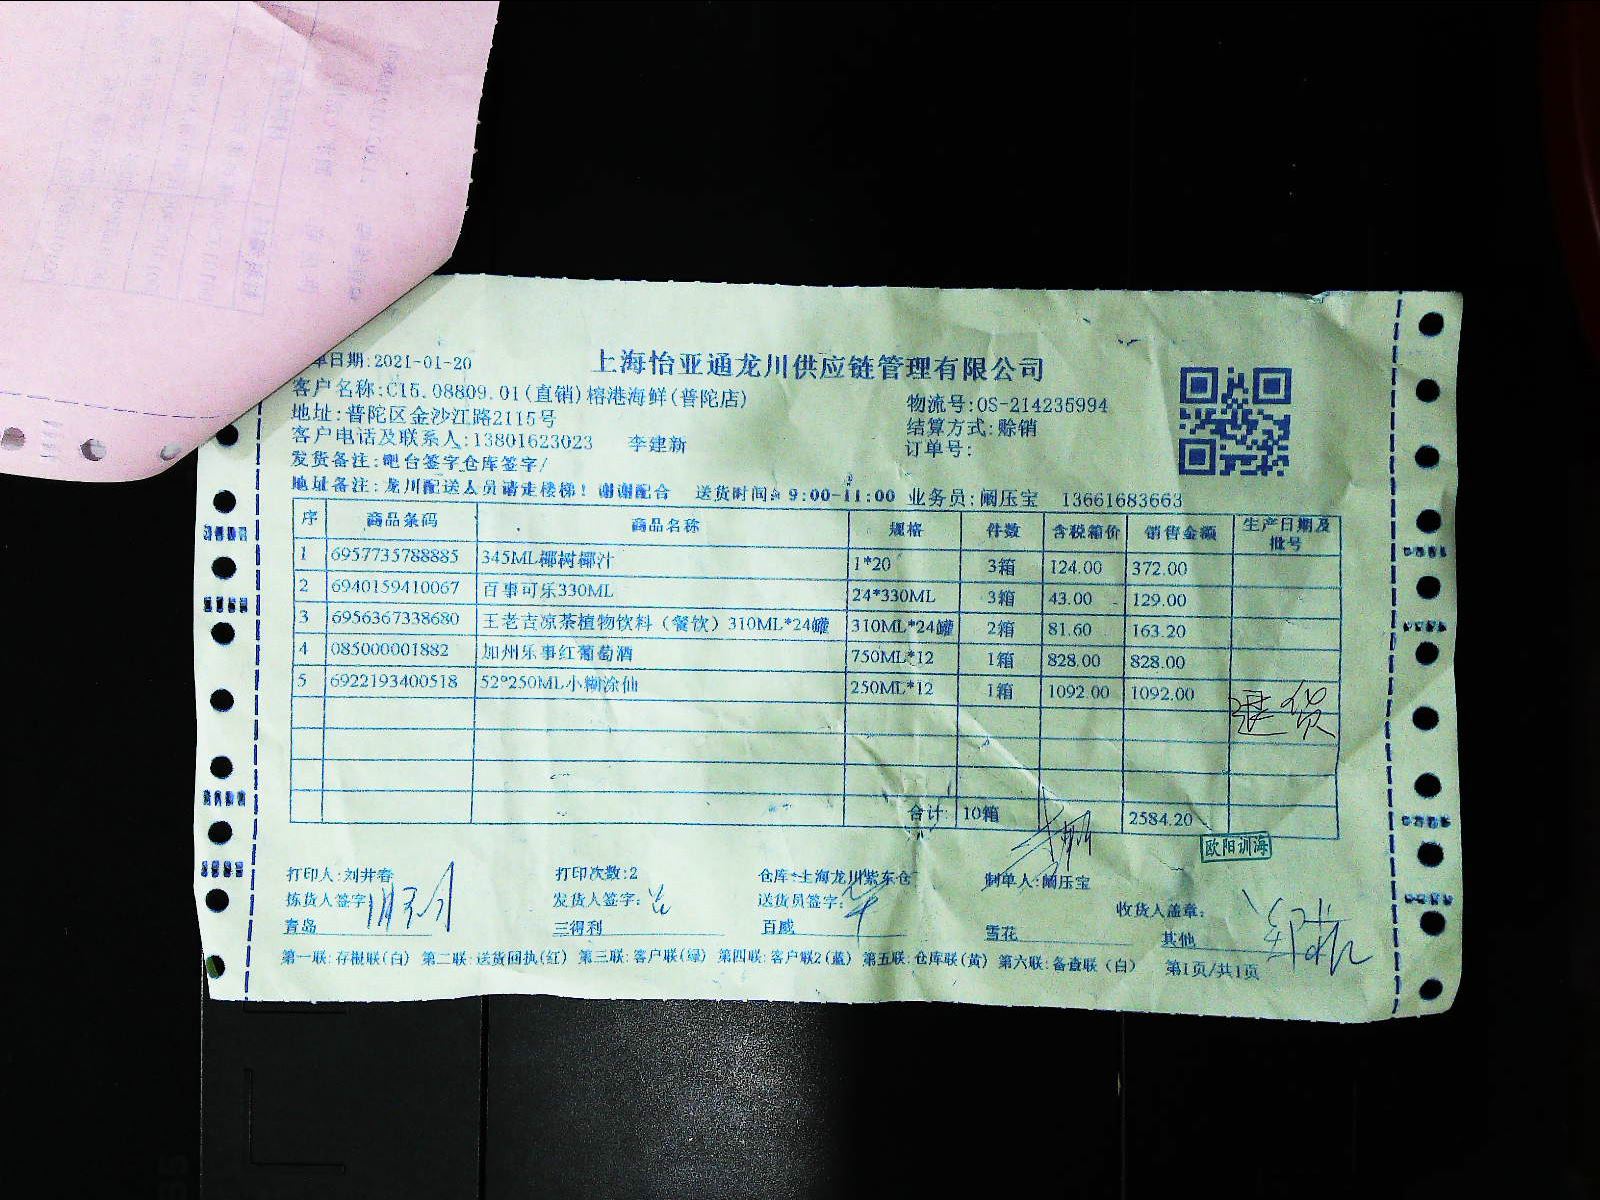 单日期:2021-01-20
上海怡亚通龙川供应链管理有限公司
客户名称:C15.08809.01(直销)榕港海鲜(普陀店)
物流号:OS-214235994
地址:普陀区金沙江路2115号
结算方式:赊销
客户电话及联系人:13801623023 李建新
订单号:
发货备注:吧台签字仓库签字/
地址备注:龙川配送人员请走楼梯！谢谢配合 送货时间:9:00-11:00 业务员:阚压宝 13661683663
序 商品条码 商品名称 规格 件数 含税箱价 销售金额 生产日期及批号
1 6957735788885 345ML椰树椰汁 1*20 3箱 124.00 372.00
2 6940159410067 百事可乐330ML 24*330ML 3箱 43.00 129.00
3 6956367338680 王老吉凉茶植物饮料（餐饮）310ML*24罐 310ML*24罐 2箱 81.60 163.20
4 085000001882 加州乐事红葡萄酒 750ML*12 1箱 828.00 828.00
5 6922193400518 52°250ML小糊涂仙 250ML*12 1箱 1092.00 1092.00
退货
合计: 10箱 2584.20
欧阳训海
打印人:刘井春 打印次数:2 仓库:上海龙川紫东仓 制单人:阚压宝
拣货人签字: 发货人签字: 送货员签字: 收货人盖章:
青岛 三得利 百威 雪花 其他
第一联:存根联(白) 第二联:送货回执(红) 第三联:客户联(绿) 第四联:客户联2(蓝) 第五联:仓库联(黄) 第六联:备查联(白) 第1页/共1页